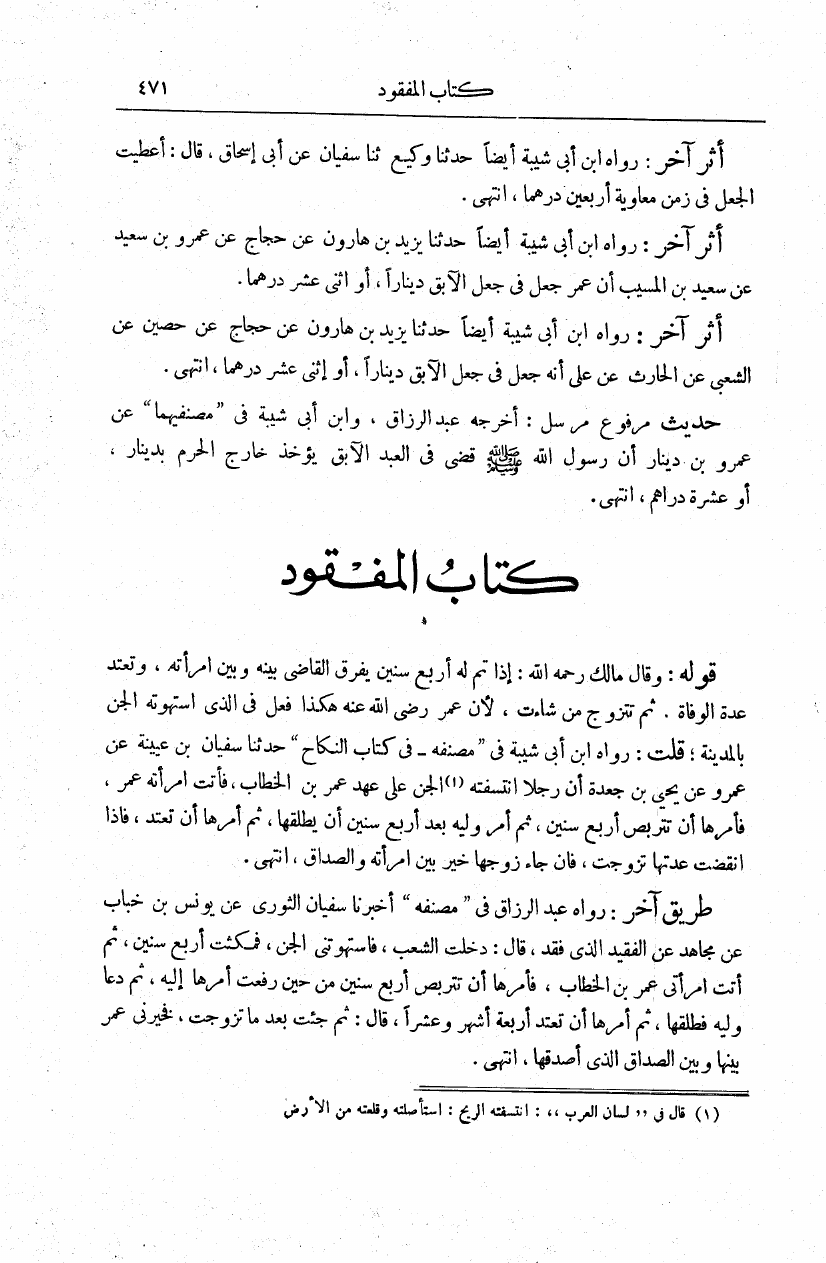 كتاب المفقود ٤٧١
أثر آخر : رواه ابن أبى شيبة أيضاً حدثنا وكيع ثنا سفيان عن أبى إسحاق ، قال : أعطيت
الجعل فى زمن معاوية أربعين درهما ، انتهى .
أثر آخر : رواه ابن أبى شيبة أيضاً حدثنا يزيد بن هارون عن حجاج عن عمرو بن سعيد
عن سعيد بن المسيب أن عمر جعل فى جعل الآبق ديناراً ، أو اثنى عشر درهما .
أثر آخر : رواه ابن أبى شيبة أيضاً حدثنا يزيد بن هارون عن حجاج عن حصين عن
الشعبى عن الحارث عن على أنه جعل فى جعل الآبق ديناراً ، أو إثنى عشر درهما ، انتهى .
حديث مرفوع مرسل : أخرجه عبد الرزاق ، وابن أبى شيبة فى "مصنفيهما" عن
عمرو بن دينار أن رسول الله ﷺ قضى فى العبد الآبق يؤخذ خارج الحرم بدينار ،
أو عشرة دراهم ، انتهى .
كتابُ المفْقود
قوله : وقال مالك رحمه الله : إذا تم له أربع سنين يفرق القاضى بينه وبين امرأته ، وتعتد
عدة الوفاة . ثم تتزوج من شاءت ، لأن عمر رضى الله عنه هكذا فعل فى الذى استهوته الجن
بالمدينة ؛ قلت : رواه ابن أبى شيبة فى "مصنفه ـ فى كتاب النكاح" حدثنا سفيان بن عيينة عن
عمرو عن يحيى بن جعدة أن رجلا انتسفته (١) الجن على عهد عمر بن الخطاب ، فأتت امرأته عمر ،
فأمرها أن تتربص أربع سنين ، ثم أمر وليه بعد أربع سنين أن يطلقها ، ثم أمرها أن تعتد ، فاذا
انقضت عدتها تزوجت ، فان جاء زوجها خير بين امرأته والصداق ، انتهى .
طريق آخر : رواه عبد الرزاق فى "مصنفه" أخبرنا سفيان الثورى عن يونس بن خباب
عن مجاهد عن الفقيد الذى فقد ، قال : دخلت الشعب ، فاستهوتنى الجن ، فمكثت أربع سنين ، ثم
أتت امرأتى عمر بن الخطاب ، فأمرها أن تتربص أربع سنين من حين رفعت أمرها إليه ، ثم دعا
وليه فطلقها ، ثم أمرها أن تعتد أربعة أشهر وعشراً ، قال : ثم جئت بعد ما تزوجت ، فخيرنى عمر
بينها وبين الصداق الذى أصدقها ، انتهى .
(١) قال فى ,, لسان العرب ،، : انتسفته الريح : استأصلته وقلعته من الأرض